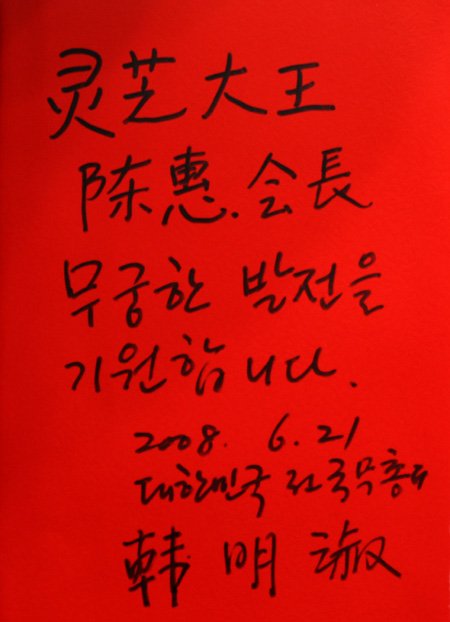 灵芝大王
陈惠.会長
무궁한 발전을
기원합니다.
2008. 6. 21
대한민국 전국무총리
韩明淑